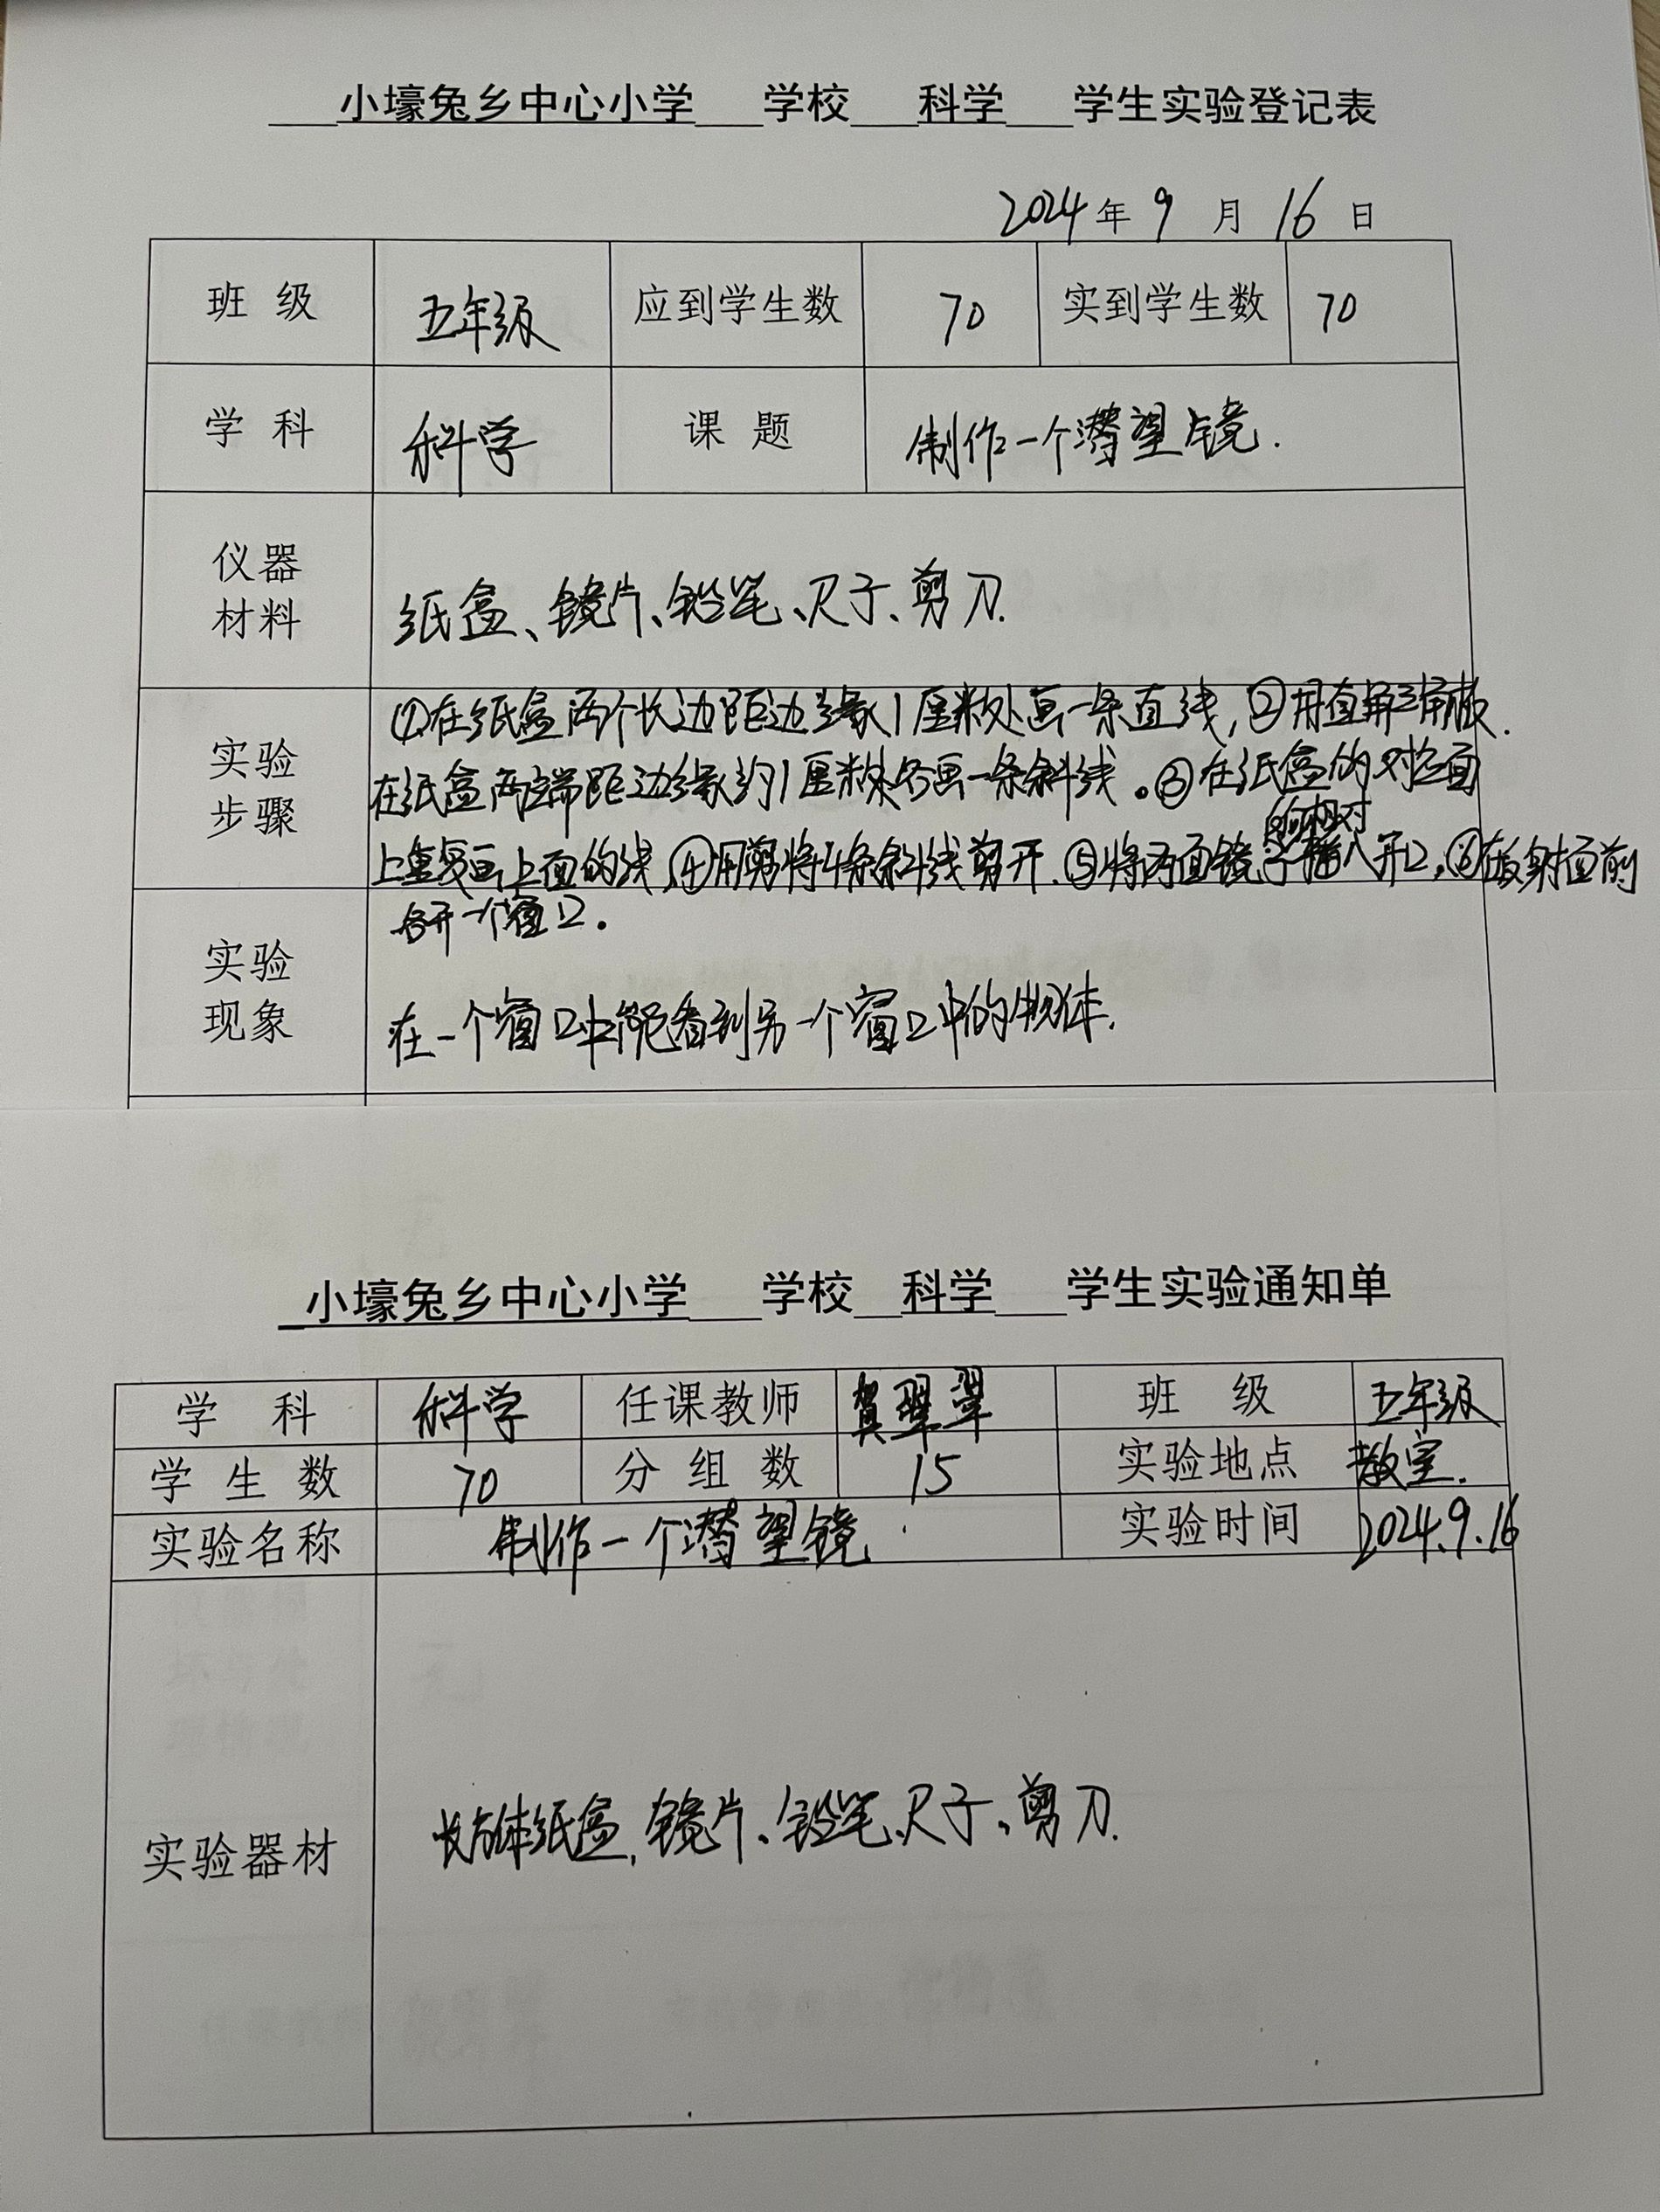 小壕兔乡中心小学 学校 科学 学生实验登记表
2024年 9 月 16 日
班 级 五年级 应到学生数 70 实到学生数 70
学 科 科学 课 题 制作一个潜望镜.
仪器
材料
纸盒、镜片、铅笔、尺子、剪刀.
实验
步骤
①在纸盒两个长边距边缘1厘米处画一条直线,②用直角三角板.
在纸盒两端距边缘约1厘米处各画一条斜线。③在纸盒的对立面
上重复画上面的线,④用剪将4条斜线剪开.⑤将两面镜子相对插入开口,⑥在反射面前
各开一个窗口。
实验
现象
在一个窗口中能看到另一个窗口中的物体.
小壕兔乡中心小学 学校 科学 学生实验通知单
学 科 科学 任课教师 贺翠翠 班 级 五年级
学 生 数 70 分 组 数 15 实验地点 教室.
实验名称 制作一个潜望镜. 实验时间 2024.9.16
实验器材 长方体纸盒,镜片、铅笔、尺子、剪刀.